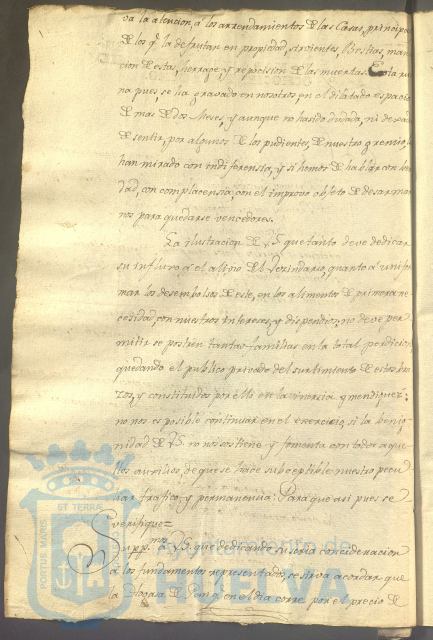 va la atencion, a los arrendamientos de las Casas, principa
de los q.e la disfrutan en propiedad, sirvientes, Bestias, man
cion de estas, herrage, y reposicion de las muertas. Esta ru
na pues, se ha gravado en nosotros, en el dilatado espacio
de mas de dos Meses, y aunque no ha sido dudada, ni dexado
de sentir, por algunos de los pudientes, de nuestro gremio, la
han mirado con indiferensia, y si hemos de hablar con ver
dad, con complacensia, con el improvo objeto de desarmar
nos para quedarse vencedores.
La ilustracion de V.S. que tanto deve dedicar
su influxo a el alivio del Vecindario, quanto a unifor
mar los desembolsos de este, en los alimentos de primera ne
cesidad, con nuestros intereses, y dispendios, no deve per
mitir se postren tantas familias en la total perdicion
quedando el publico privado del surtimiento de estos bra
zos, y constituidos por ello en la inercia y mendiquez:
no nos es posible continuar en el exercicio, si la benig
nidad de V.S. no nos sostiene y fomenta con todos aque
llos auxilios de que se hace subceptible nuestro pecu
liar trafico, y permanencia: Para que asi pues se
verifique=
Supp.mos V.S. que dedicando su seria concideracion
a los fundamentos representados, se sirva acordar que
la Hogasa de Pan q.e en el dia corre por el precio de
Ayuntamiento de
HUELVA
PORTUS MARIS ET TERRÆ CUSTODIA